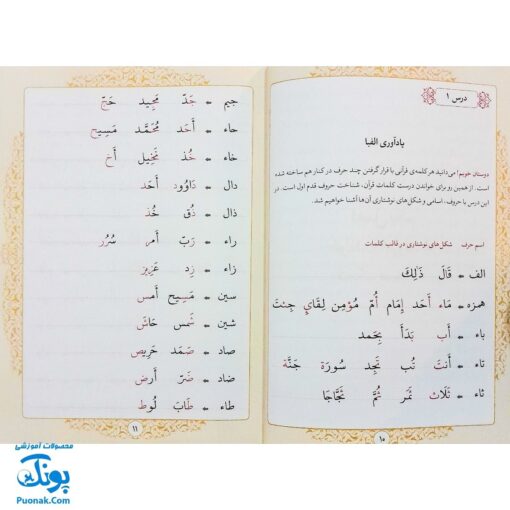 درس ۱
یادآوری الفبا
دوستان خوبم! می‌دانید هر کلمه‌ی قرآنی با قرار گرفتن چند حرف در کنار هم ساخته شده
است. از همین رو برای خواندن درست کلمات قرآن، شناخت حروف قدم اول است. در
این درس با حروف، اسامی و شکل‌های نوشتاری آن‌ها آشنا خواهیم شد.
اسم حرف شکل‌های نوشتاری در قالب کلمات
الف ← قَالَ ذَلِكَ
همزه ← مَاء أَحَد إِمَام أُمّ مُؤمِن لِقَايٍ جِئتَ
باء ← أَب بَدَأَ بِحَمد
تاء ← أَنتَ تُب نَجِد سُورَة جَنَّة
ثاء ← ثَلَاث ثَمَر ثُمَّ ثَجَّاجًا
۱۰
جیم ← جَدّ مَجِيد حَجّ
حاء ← أَحَد مُحَمَّد مَسِيح
خاء ← خُذ نَخِيل أَخ
دال ← دَاوُود أَحَد
ذال ← ذُق خُذ
راء ← رَبّ أَمر سُرُر
زاء ← زِد عَزِيز
سین ← مَسِيح أَمس
شین ← شَمس حَاشَ
صاد ← صَمَد حَرِيص
ضاد ← ضَرّ أَرض
طاء ← طَابَ لُوط
۱۱
محصولات آموزشی
پونک
Puonak.Com